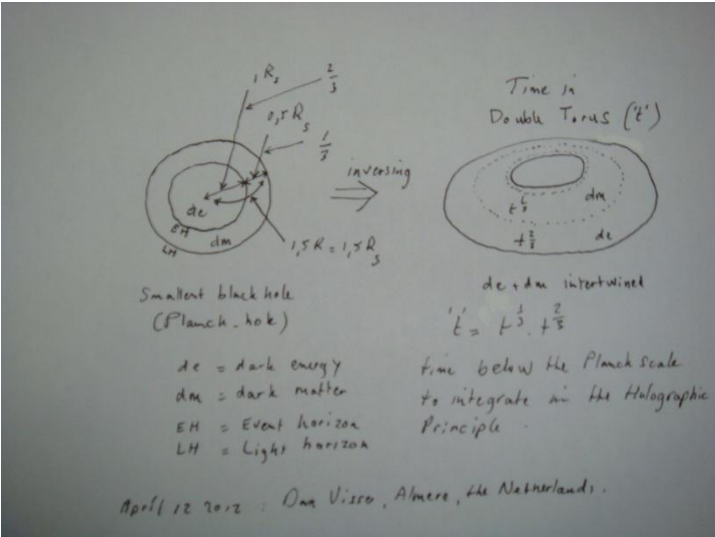 1 Rs
2/3
0,5 Rs
1/3
de
EH
dm
LH
1,5 R = 1,5 Rs
inversing
Time in
Double Torus ('t')
t 1/3
dm
t 2/3
de
Smallest black hole
(Planck-hole)
de + dm intertwined
't' = t 1/3 . t 2/3
de = dark energy
dm = dark matter
EH = Event horizon
LH = Light horizon
time below the Planck scale
to integrate in the Holographic
Principle.
April 12 2012 : Dan Visser, Almere, the Netherlands.